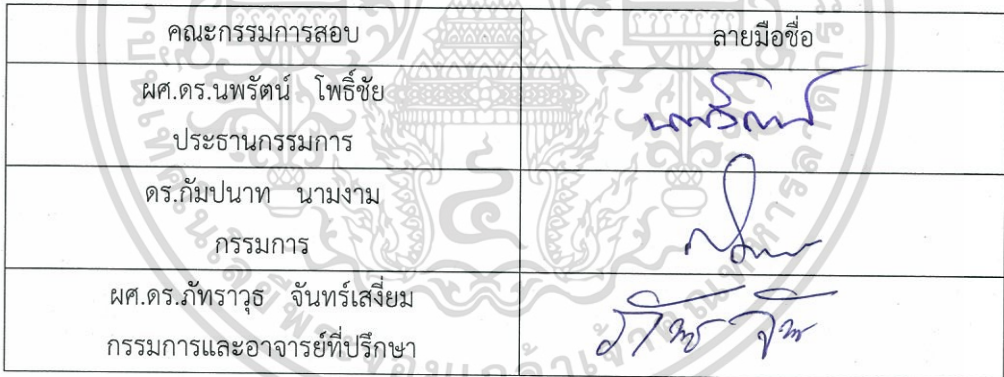 คณะกรรมการสอบ ลายมือชื่อ
ผศ.ดร.นพรัตน์ โพธิ์ชัย
ประธานกรรมการ
ดร.กัมปนาท นามงาม
กรรมการ
ผศ.ดร.ภัทราวุธ จันทร์เสงี่ยม
กรรมการและอาจารย์ที่ปรึกษา